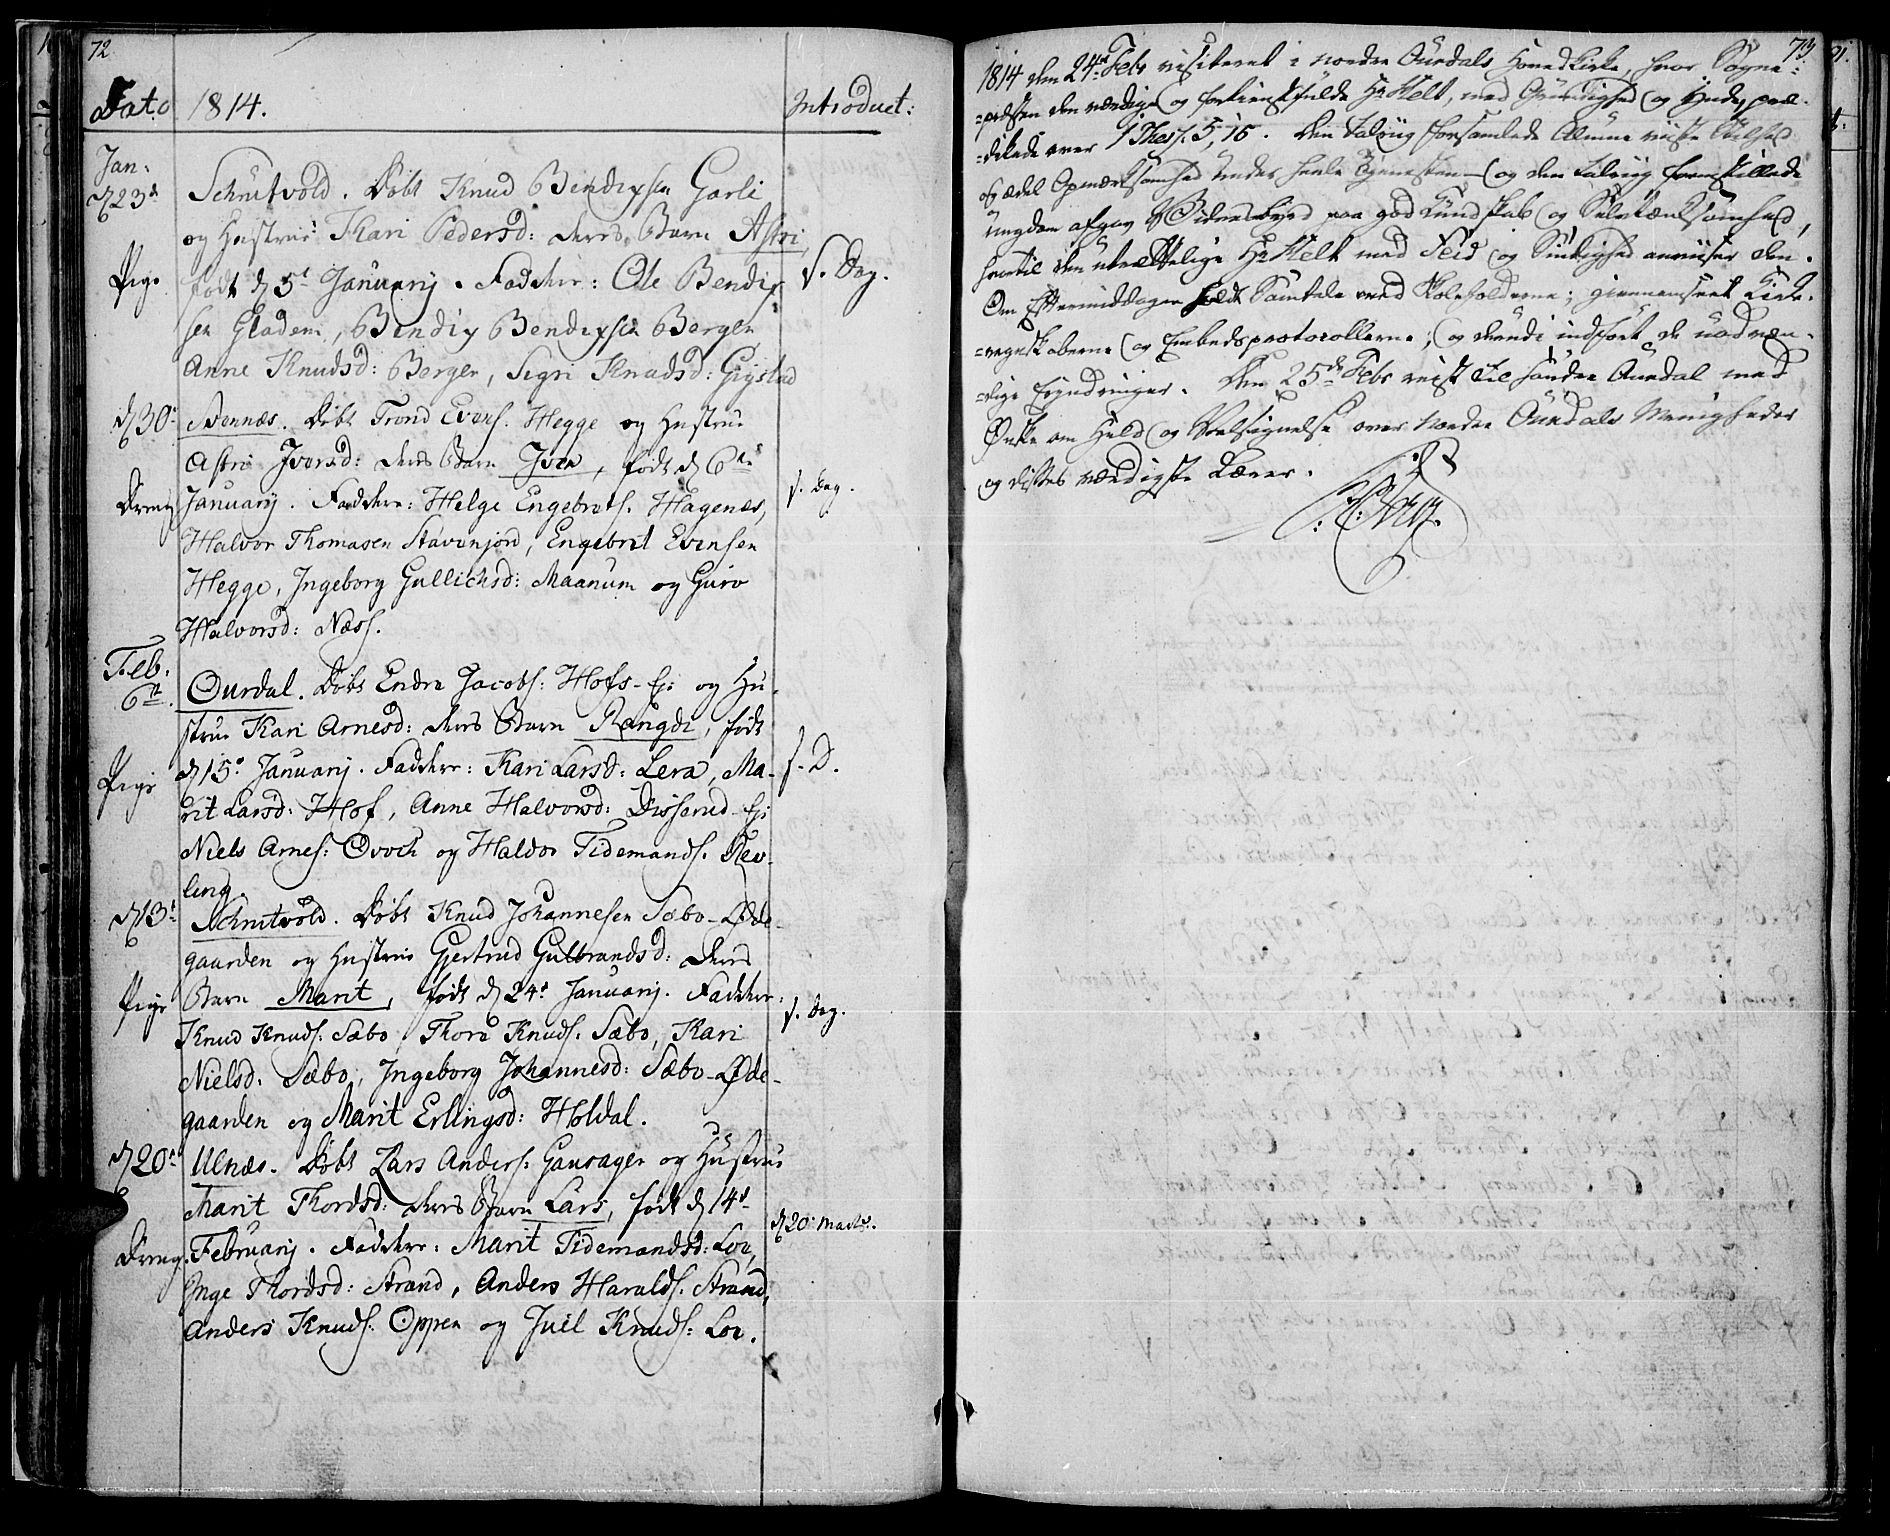 72
Dato 1814. Introduct:
Jan:
d 23d Schrutvold. Døbt Knud Bendixsen Garli
og Hustrue Kari Pedersd: deres Barn Astri,
Pige født d 5t Januarij. Faddere: Ole Bendix- s. Dag.
sen Gladem, Bendix Bendixsen Bergen
Anne Knudsd: Bergen, Sigri Knudsd: Gigstad
d 30t Svennæs. Døbt Trond Evens. Hegge og Hustrue
Astri Iversd: deres Barn Iver, født d 6te
Dreng Januarij. Faddere: Helge Engebrets. Hagenæs, s. Dag.
Halvor Thomasen Stavenjord, Engebret Evensen
Hegge, Ingeborg Gullichsd: Maanum og Guro
Halvorsd: Næss.
Feb:
6te. Ourdal. Døbt Endre Jacobs: Hofs-Ej: og Hu-
strue Kari Arnesd: deres Barn Rangdi, født
Pige d 15t Januarij. Faddere: Kari Larsd: Lera, Ma- s. D.
rit Larsd: Hof, Anne Halvorsd: Disserud-Ej:
Niels Arnes: Qvoch og Haldor Tidemands. Rev-
ling.
d 13t Schrutvold. Døbt Knud Johannesen Sæbo-Øde-
gaarden og Hustrue Gjertrud Gulbrandsd: deres
Pige Barn Marit, født d 24t Januarij. Faddere: s. Dag.
Knud Knuds: Sæbo, Thore Knuds. Sæbo, Kari
Nielsd: Sæbo, Ingeborg Johannesd: Sæbo-Øde-
gaarden og Marit Erlingsd: Holdal.
d 20t Ulnæs. Døbt Lars Anders: Gausager og Hustrue
Marit Thordsd: deres Barn Lars, født d 14d
Dreng. Februarij. Faddere: Marit Tidemandsd: Loe, d 20t Martz.
Inge Thordsd: Strand, Anders Haralds. Strand,
Anders Knuds: Oppen og Juel Knuds: Loe.
73
1814 den 24de Febr visiteret i nordre Ourdals Hovedkirke, hvor Sogne-
præsten den værdige og fortienstfulde Hr Kelt, med Grundighed og Ynde præ-
dikede over 1 Thess. 5, 16. Den talrig forsamlede Almue viste
og ædel Opmærksomhed under heele Tjenesten - og den talrig fremstillede
ungdom afgav Vidnesbyrd paa god Kundskab og Selvtænksomhed,
hvortil den utrættelige Hr Kelt med Flid og Sindighed anviser den.
Om Eftermiddagen holdt Samtale med Skoleholderne; giennemseet Kirke-
regnskaberne og Embedsprotocollerne, og derudi indført de nødven-
dige Erindringer. Den 25de Febr reist til søndre Ourdal med
Ønske om Held og Velsignelse over nordre Ourdals Menigheder
og disses værdigste Lærer.